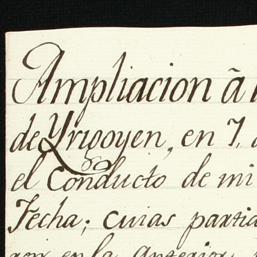 Ampliacion ā
de Yrigoyen, en 7,
el Conducto de mi
Fecha; cuias partid
en la anterior